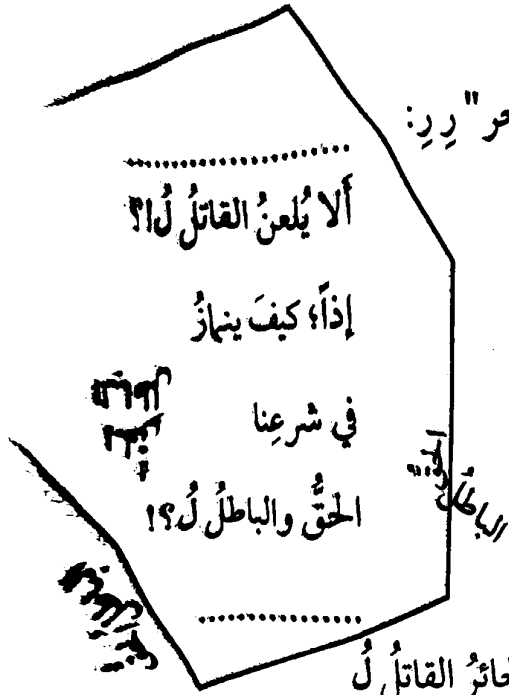 حر" رِرِ:
.....................
أَلا يُلعنُ القاتلُ لُ!؟
إذاً؛ كيفَ ينمازُ
في شرعِنا
الحقُّ والباطلُ لُ؟!
الحقُّ
الباطلُ
.....................
حائرُ القاتلُ لُ